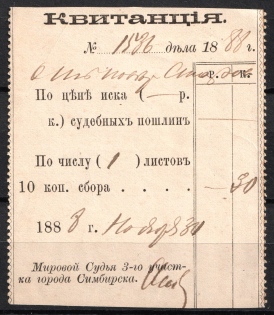 Квитанція.
№ 1586 дѣла 1888 г.
Р. К.
По цѣнѣ иска (— р.
к.) судебныхъ пошлин
По числу (1) листовъ
10 коп. сбора . . . . — 30
1888 г. Ноября 30
Мировой Судья 3-го участ-
ка города Симбирска.